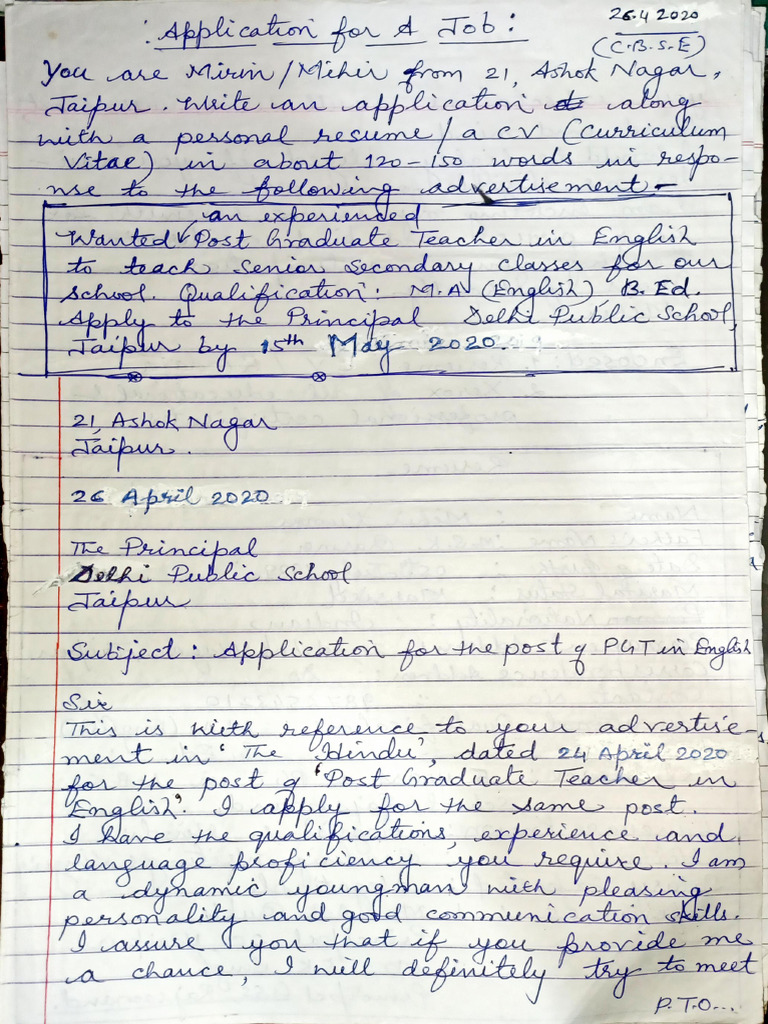 26.4 2020
: Application for A Job :
(C.B.S.E)
You are Mirin/Mihir from 21, Ashok Nagar,
Jaipur. Write an application along
with a personal resume/a CV (Curriculum
Vitae) in about 120-150 words in respo-
nse to the following advertisement -
an experienced
Wanted Post Graduate Teacher in English
to teach senior secondary classes for our
school. Qualification: M.A (English), B.Ed.
Apply to the Principal Delhi Public School,
Jaipur by 15th May 2020.
21, Ashok Nagar
Jaipur.
26 April 2020
The Principal
Delhi Public School
Jaipur
Subject: Application for the post of PGT in English
Sir
This is with reference to your advertise-
ment in 'The Hindu', dated 24 April 2020
for the post of 'Post Graduate Teacher in
English'. I apply for the same post.
I have the qualifications, experience and
language proficiency you require. I am
a dynamic youngman with pleasing
personality and good communication skills.
I assure you that if you provide me
a chance, I will definitely try to meet
P.T.O...